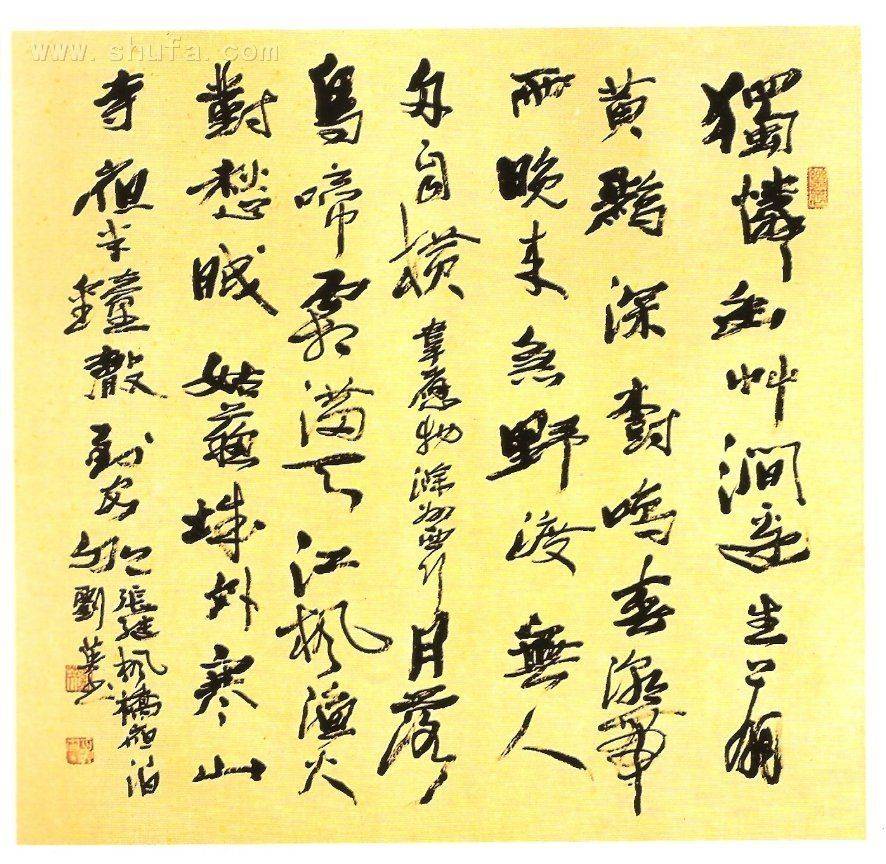 www.shufa.com
獨憐幽艸澗邊生上有
黄鸝深樹鳴春潮帶
雨晚来急野渡無人
舟自横韋應物滁州西澗月落
烏啼霜滿天江楓漁火
對愁眠姑蘇城外寒山
寺夜半鐘聲到客船
張継楓橋夜泊
劉